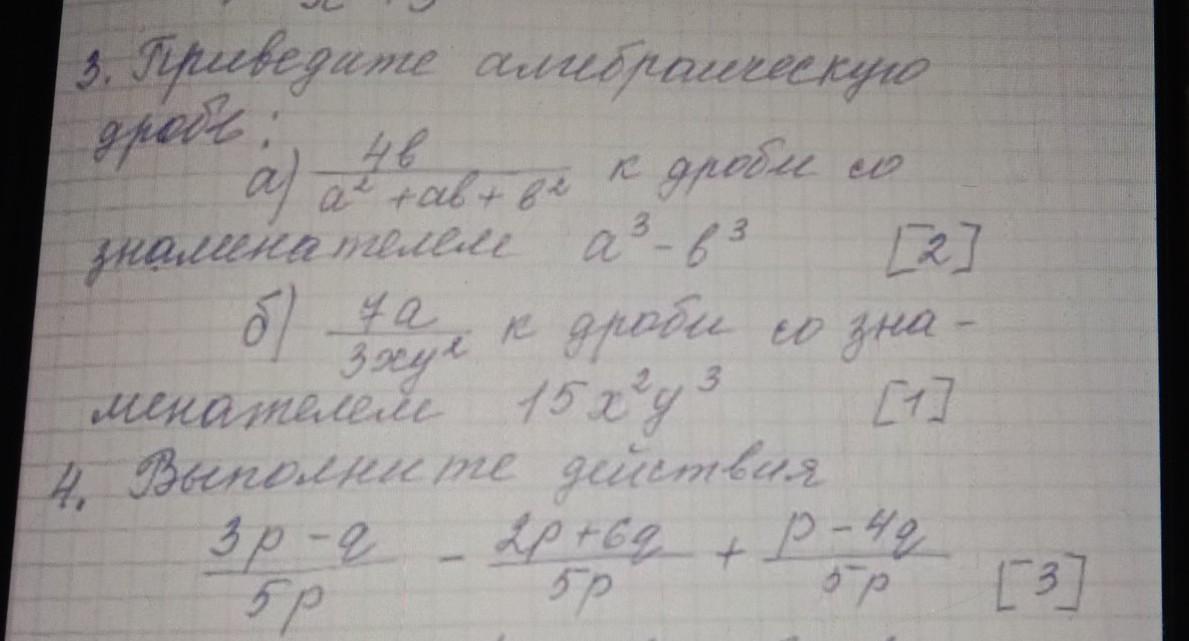 3. Приведите алгебраическую
дробь:
а) 4b / a² + ab + b² к дроби со
знаменателем a³ - b³ [2]
б) 7a / 3xy² к дроби со зна-
менателем 15x²y³ [1]
4. Выполните действия
3p - q / 5p - 2p + 6q / 5p + p - 4q / 5p [3]